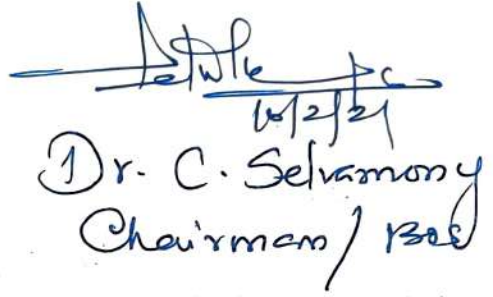 10/2/21
Dr. C. Selvamony
Chairman / BoS